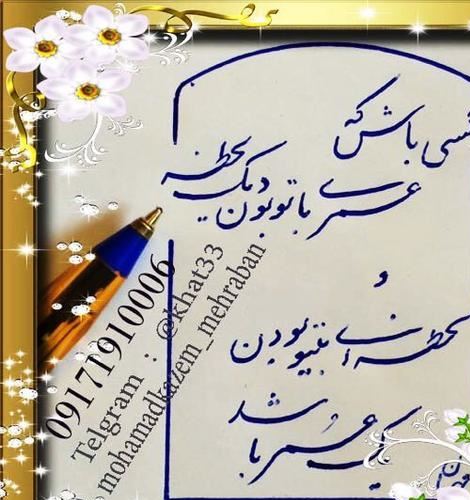 باش که
عمری با تو بودن یک لحظه
و
لحظه ای بیتو بودن
یک عمر باشد
09171910006
Telgram : @khat33
mohamadkazem_mehraban